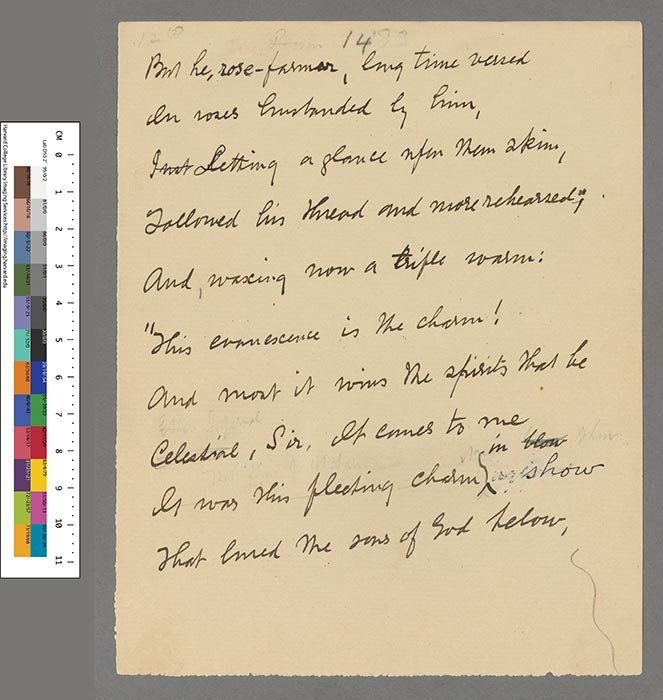 14
But he, rose-farmer, long time versed
In roses husbanded by him,
Just Letting a glance upon them skim,
Followed his thread and more rehearsed;
And, waxing now a trifle warm:
"This evanescence is the charm!
And most it wins the spirits that be
Celestial, Sir. It comes to me
in blow
It was this fleeting charm show
That lured the sons of God below,
CM 0 1 2 3 4 5 6 7 8 9 10 11
Harvard College Library Imaging Services http://imaging.harvard.edu